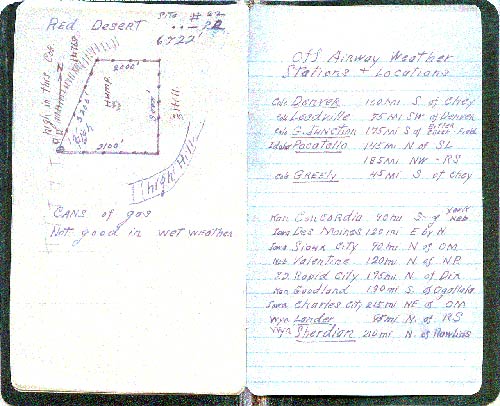 RED DESERT
SITE # 22
6722'
high in this Cor
2000'
HUMP
Hill
2100'
high
high Hill
CANS of gas
Not good in wet weather
Off Airway Weather
Stations + Locations
Colo Denver 100 mi S. of Chey
Colo Leadville 75 mi SW of Denver
Colo G. Junction 175 mi S of Field
Idaho Pocatello 145 mi N of SL
185 mi NW - RS
Colo Greely 45 mi S of Chey
Kan Concordia 90 mi S- of York Neb
Iowa Des Moines 120 mi E by N.
Iowa Sioux City 90 mi N of OM
Neb Valentine 120 mi N. of N.P.
S.D. Rapid City 195 mi N. of Dix
Kan Goodland 190 mi S. of Ogallala
Iowa Charles City 215 mi NE of OM
Wyo Lander 95 mi N. of RS
Wyo Sherdian 210 mi N. of Rawlins